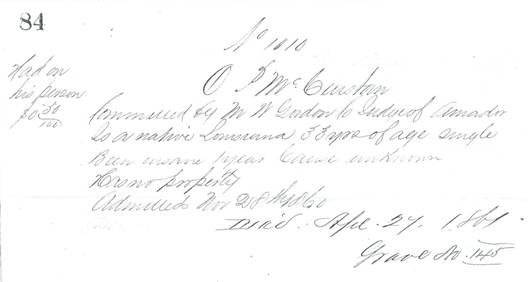 84
No 1010
Had on
his person
$0 50/100
O P McCuistan
Committed by M W Gordon Co Judge of Amador
Is a native Louisiana 33 yrs of age single
Been insane 1 year Cause unknown
Has no property
Admitted Nov 28th 1860
Died. Apl. 27. 1861
Grave No. 145